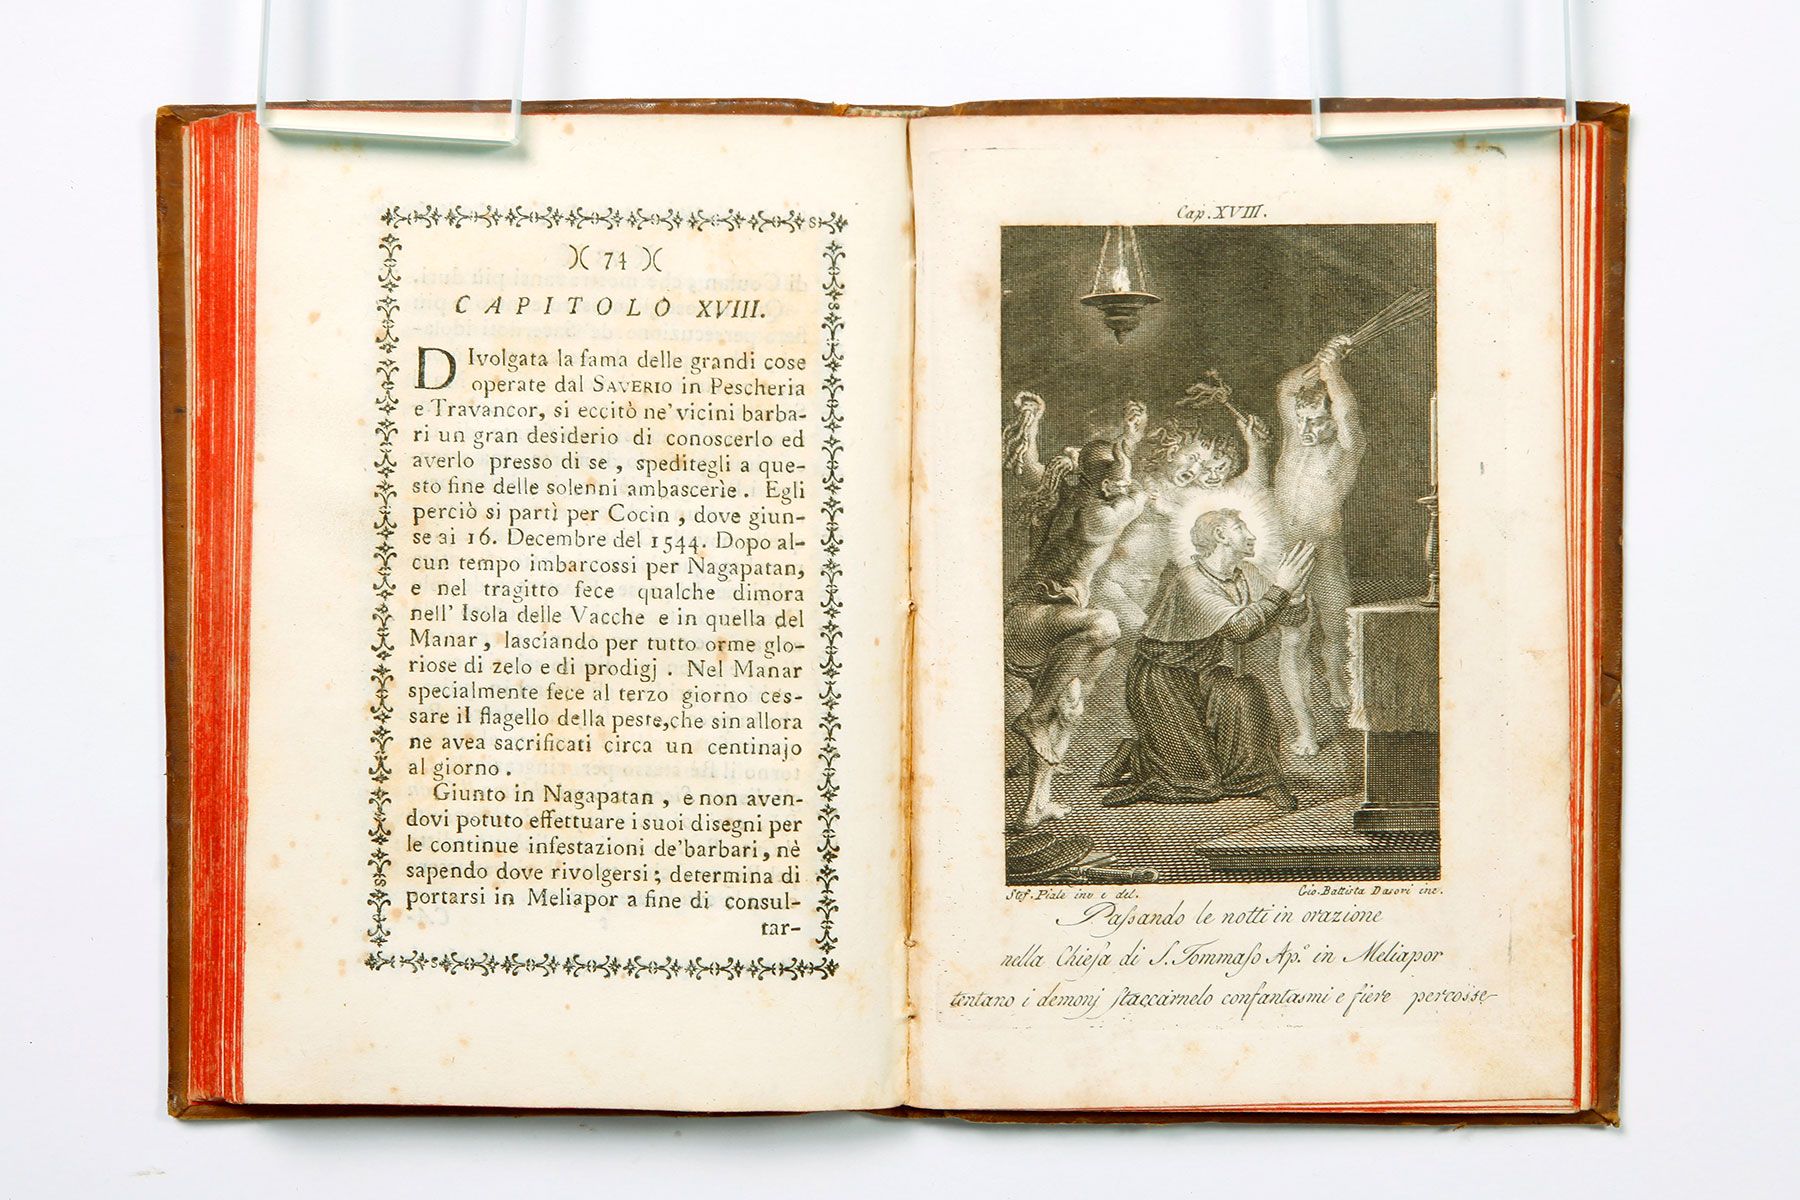 )( 74 )(
CAPITOLO XVIII.
DIvolgata la fama delle grandi cose
operate dal SAVERIO in Pescheria
e Travancor, si eccitò ne' vicini barba-
ri un gran desiderio di conoscerlo ed
averlo presso di se, speditegli a que-
sto fine delle solenni ambascerìe. Egli
perciò si partì per Cocin, dove giun-
se ai 16. Decembre del 1544. Dopo al-
cun tempo imbarcossi per Nagapatan,
e nel tragitto fece qualche dimora
nell' Isola delle Vacche e in quella del
Manar, lasciando per tutto orme glo-
riose di zelo e di prodigj. Nel Manar
specialmente fece al terzo giorno ces-
sare il flagello della peste, che sin allora
ne avea sacrificati circa un centinajo
al giorno.
Giunto in Nagapatan, e non aven-
dovi potuto effettuare i suoi disegni per
le continue infestazioni de' barbari, nè
sapendo dove rivolgersi; determina di
portarsi in Meliapor a fine di consul-
tar-
Cap. XVIII.
Stef. Piale inv e del.
Gio. Battista Dasori inc.
Paſsando le notti in orazione
nella Chieſa di S. Tommaſo Ap.º in Meliapor
tentano i demonj ſtaccarnelo con fantasmi e fiere percosse